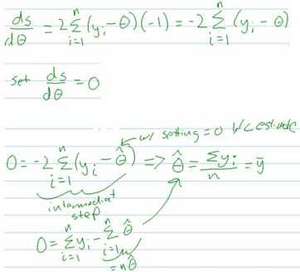 ds/dθ = 2 Σ_{i=1}^{n} (y_i - θ)(-1) = -2 Σ_{i=1}^{n} (y_i - θ)
set ds/dθ = 0
w/ setting = 0 b/c estimate
0 = -2 Σ_{i=1}^{n} (y_i - θ̂) => θ̂ = Σy_i/n = ȳ
intermediate
step
0 = Σ_{i=1}^{n} y_i - Σ_{i=1}^{n} θ̂
= nθ̂